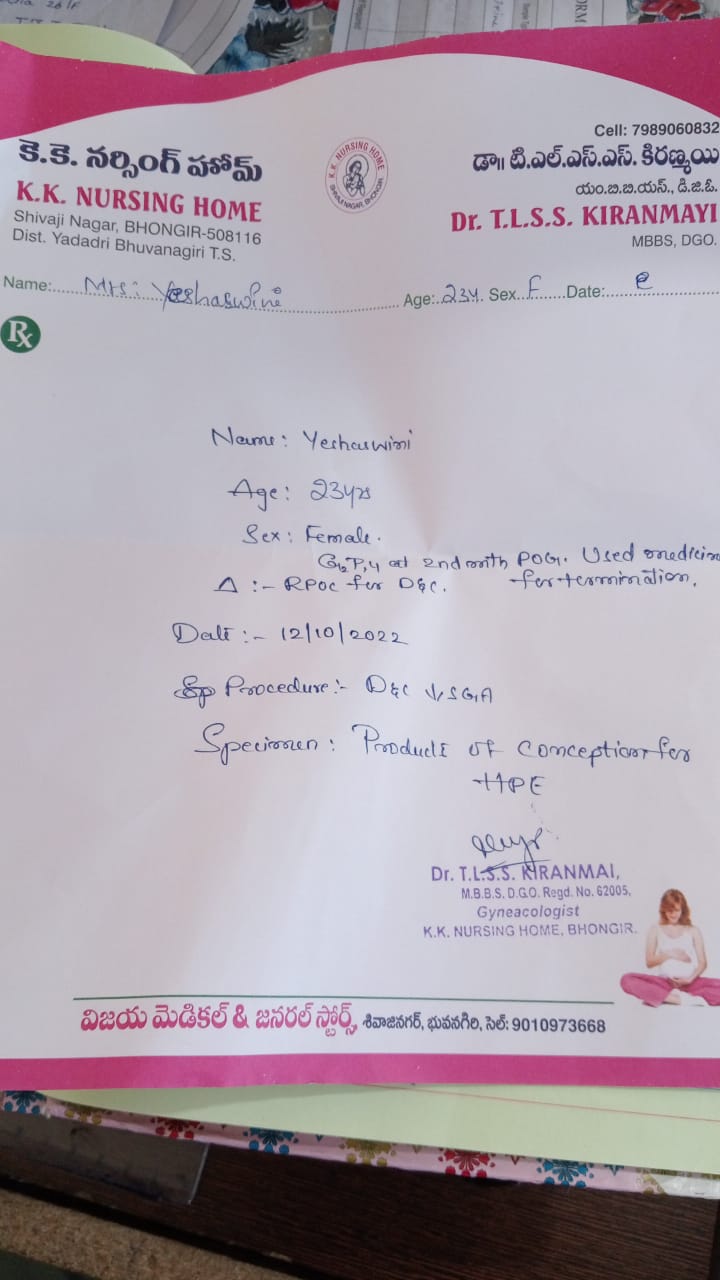 Cell: 7989060832
కె.కె. నర్సింగ్ హోమ్
K.K. NURSING HOME
Shivaji Nagar, BHONGIR-508116
Dist. Yadadri Bhuvanagiri T.S.
K.K. NURSING HOME
SHIVAJI NAGAR, BHONGIR
డా॥ టి.ఎల్.ఎస్.ఎస్. కిరణ్మయి
యం.బి.బి.యస్., డి.జి.ఓ.
Dr. T.L.S.S. KIRANMAYI
MBBS, DGO.
Name: Mrs: Yeshaswini Age: 23y. Sex F Date:
Rx
Name: Yeshaswini
Age: 23yrs
Sex: Female.
at 2nd month POG. Used medicine
Δ :- RPOC for D&C. for termination.
Date :- 12/10/2022
Procedure:- D&C
Specimen: Products of conception for
HPE
Dr. T.L.S.S. KIRANMAI,
M.B.B.S. D.G.O. Regd. No. 62005,
Gyneacologist
K.K. NURSING HOME, BHONGIR.
విజయ మెడికల్ & జనరల్ స్టోర్స్, శివాజినగర్, భువనగిరి, సెల్: 9010973668